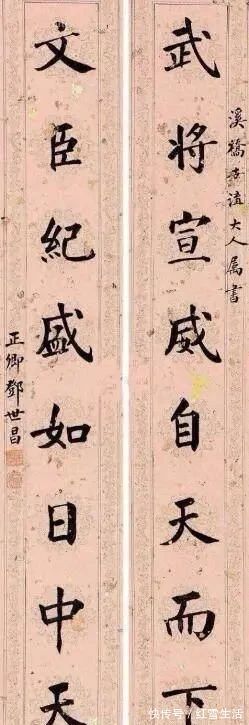 溪橋 大人属書
武将宣威自天而下
文臣紀盛如日中天
正卿鄧世昌
快传号/红雪生活